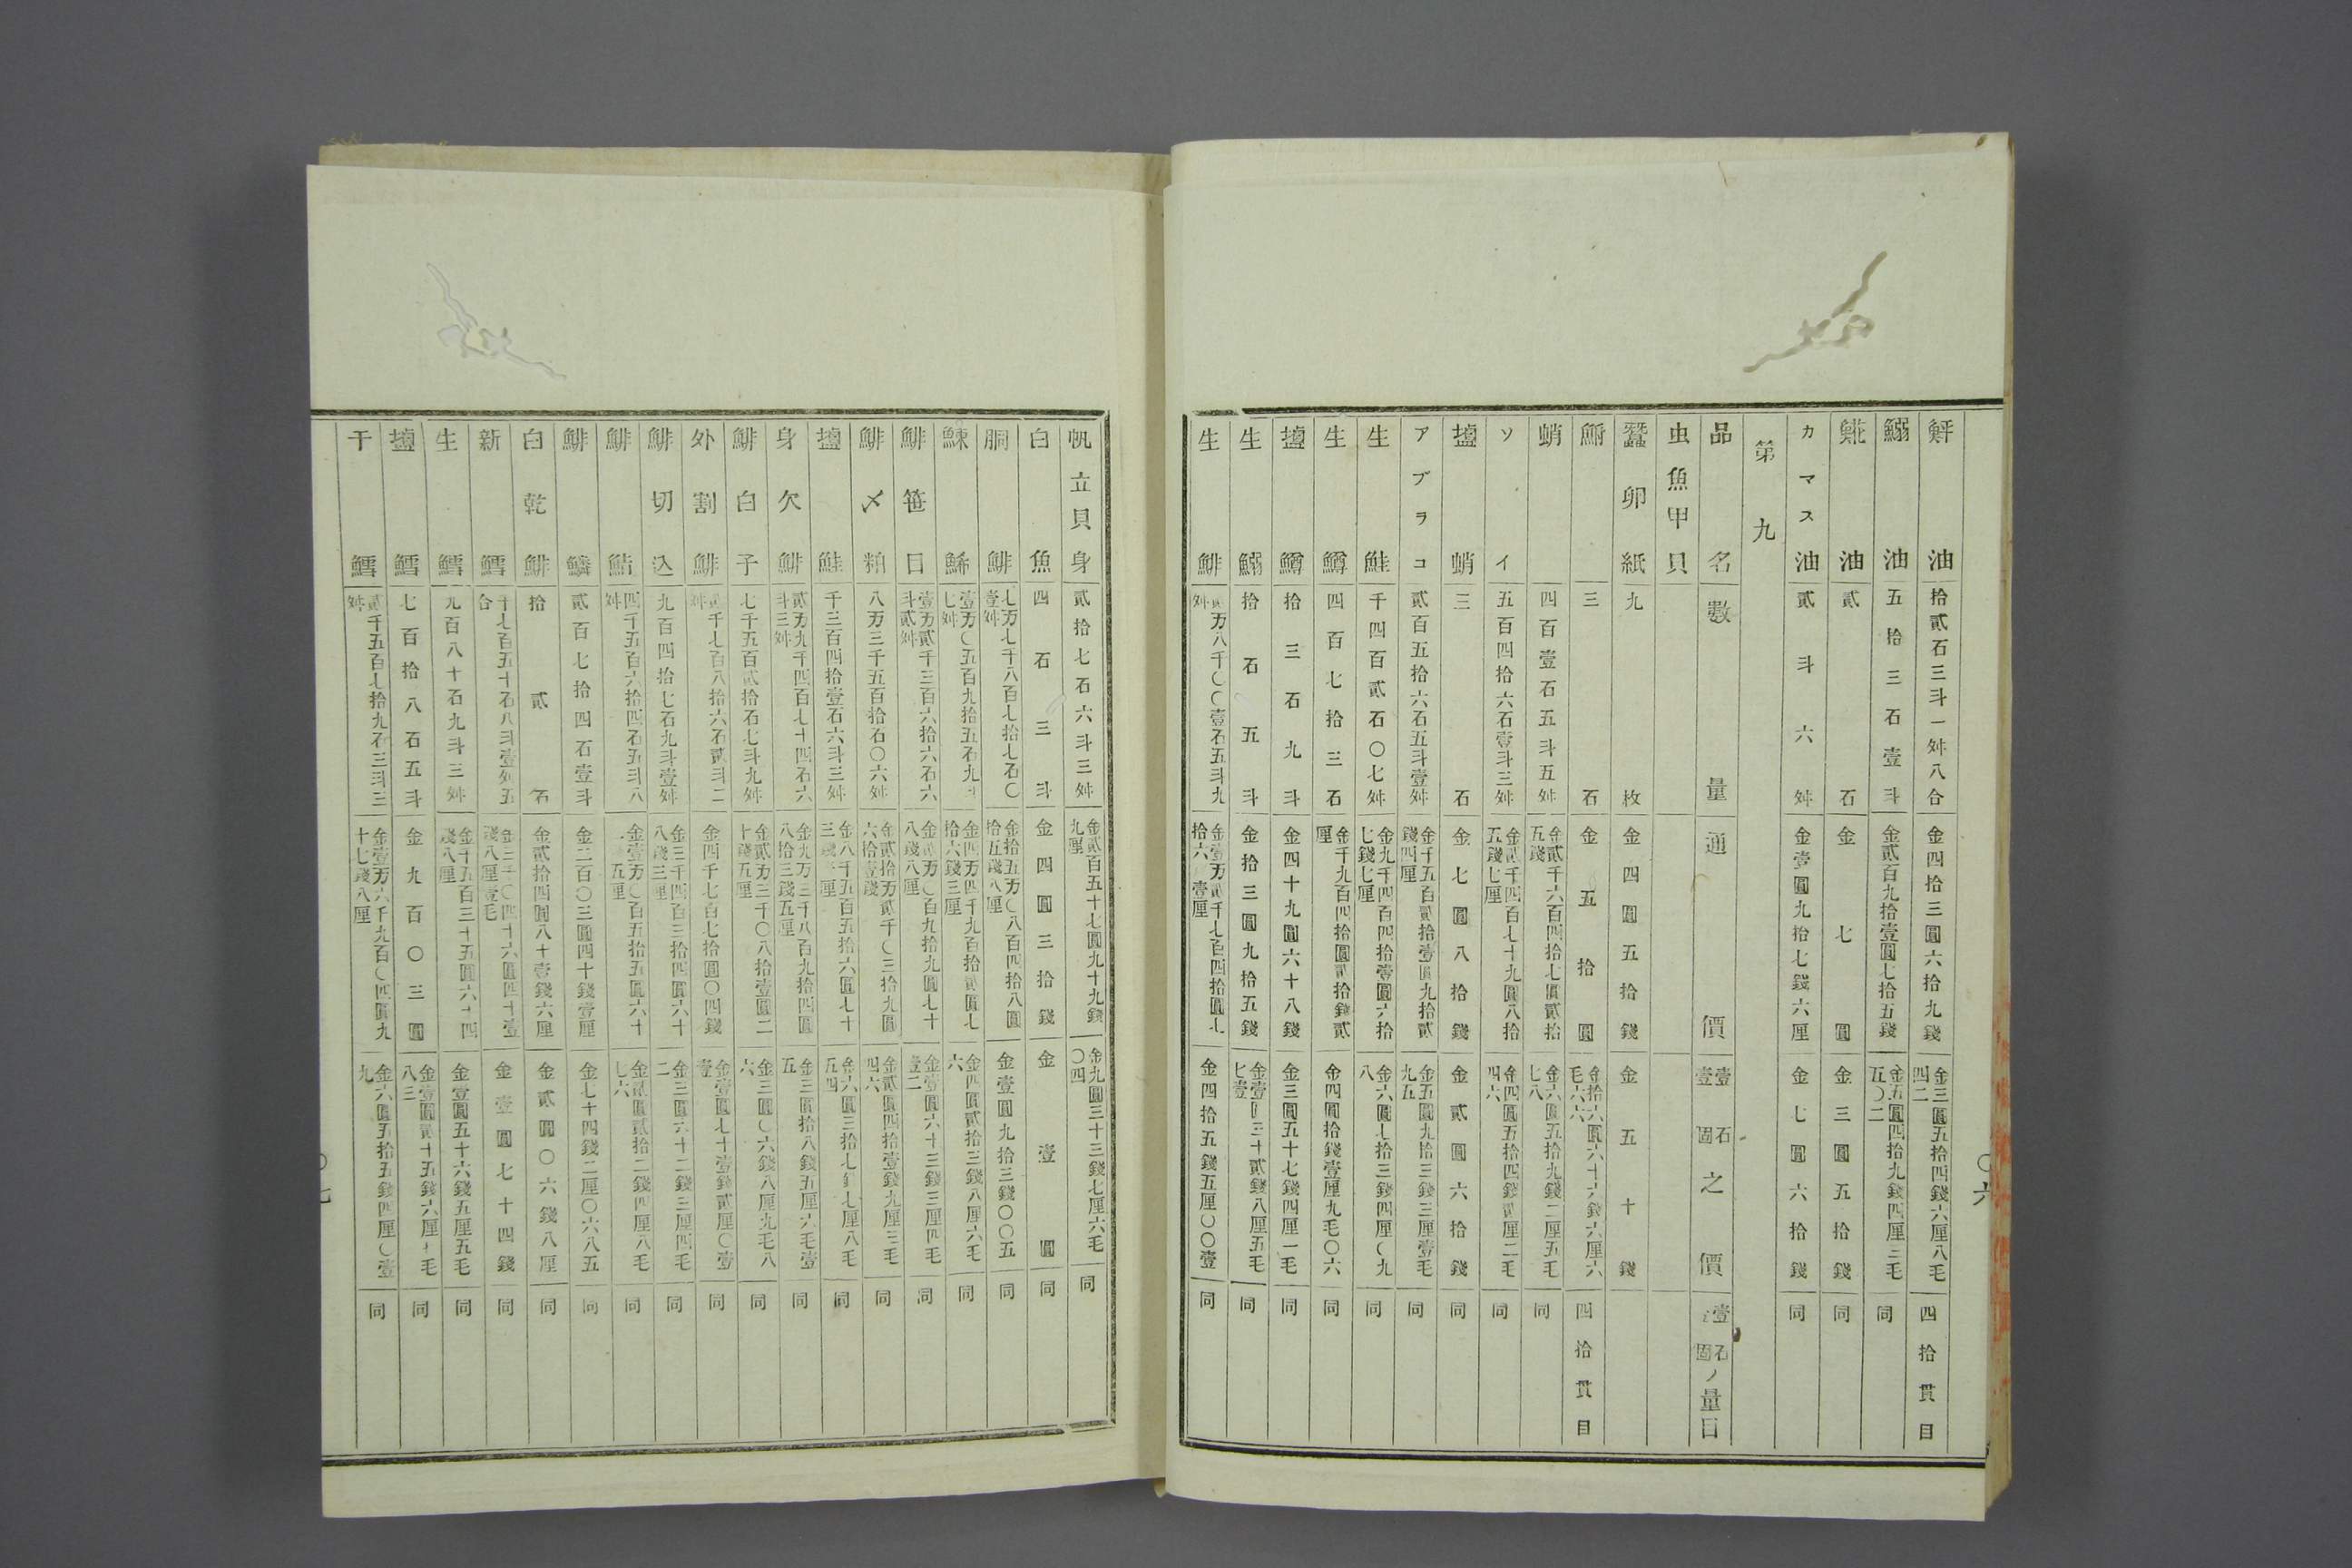 油 拾貳石三斗一舛八合 金四拾三圓六拾九錢 金三圓五拾四錢六厘八毛四二 四拾貫目
鰯油 五拾三石壹斗 金貳百九拾壹圓七拾五錢 金五圓四拾九錢四厘三毛五〇二 同
油 貳石 金七圓 金三圓五拾錢 同
カマス油 貳斗六舛 金壹圓九拾七錢六厘 金七圓六拾錢 同
第九
品名 數量 通價 壹石壹固之價 壹石固ノ量目
虫魚甲貝
蠶卵紙 九枚 金四圓五拾錢 金五十錢
三石 金五拾圓 金拾六圓六十六錢六厘六毛六六 四拾貫目
蛸 四百壹石五斗五舛 金貳千六百四拾七圓貳拾五錢 金六圓五拾九錢二厘五毛七八 同
ソイ 五百四拾六石壹斗三舛 金貳千四百七十九圓八拾五錢七厘 金四圓五拾四錢貳厘二毛四六 同
鹽蛸 三石 金七圓八拾錢 金貳圓六拾錢 同
アブラコ 貳百五拾六石五斗壹舛 金千五百貳拾壹圓九拾貳錢四厘 金五圓九拾三錢三厘壹毛九五 同
生鮭 千四百貳石〇七舛 金九千四百四拾壹圓六拾七錢七厘 金六圓七拾三錢四厘〇九八 同
生鱒 四百七拾三石 金千九百四拾圓貳拾錢貳厘 金四圓拾錢壹厘九毛〇六 同
鹽鱒 拾三石九斗 金四十九圓六十八錢 金三圓五十七錢四厘一毛 同
生鰯 拾石五斗 金拾三圓九拾五錢 金壹圓三十貳錢八厘五毛七壹 同
生鯡 貳万八千〇〇壹石五斗九舛 金壹万貳千七百四拾圓七拾六 壹厘 金四拾五錢五厘〇〇壹 同
〇六
帆立貝身 貳拾七石六斗三舛 金貳百五十七圓九十九錢九厘 金九圓三十三錢七厘六毛〇四 同
白魚 四石三斗 金四圓三拾錢 金壹圓 同
胴鯡 七万七千八百七拾七石〇壹舛 金拾五万〇八百四拾八圓拾五錢八厘 金壹圓九拾三錢〇〇五 同
鰊鯑 壹万〇五百九拾五石九斗七舛 金四万四千九百拾貳圓七拾六錢三厘 金四圓貳拾三錢八厘六毛六 同
鯡笹目 壹万貳千三百六拾六石六斗貳舛 金貳万〇百九拾九圓七十八錢八厘 金壹圓六十三錢三厘四毛壹二 同
鯡〆粕 八万三千五百拾石〇六舛 金貳拾万貳千〇三拾九圓六拾壹錢 金貳圓四拾壹錢九厘三毛四六 同
鹽鮭 千三百四拾壹石六斗三舛 金八千五百五拾六圓七十三錢 厘 金六圓三拾七錢七厘八毛五四 同
身欠鯡 貳万九千四百七十四石六斗三舛 金九万三千八百九拾四圓八拾三錢五厘 金三圓拾八錢五厘六毛壹五 同
鯡白子 七千五百貳拾石七斗九舛 金貳万三千〇八拾壹圓二十錢五厘 金三圓〇六錢八厘九毛八六 同
外割鯡 貳千七百八拾六石貳斗二舛 金四千七百七拾圓〇四錢 金壹圓七十壹錢貳厘〇壹壹 同
鯡切込 九百四拾七石九斗壹舛 金三千四百三拾四圓六十八錢三厘 金三圓六十二錢三厘四毛二 同
鯡鮨 四千五百六拾四石五斗八舛 金壹万〇百五拾五圓六十 五厘 金貳圓貳拾二錢四厘八毛七六 同
鯡鱗 貳百七拾四石壹斗 金二百〇三圓四十錢壹厘 金七十四錢二厘〇六八五 同
白乾鯡 拾貳石 金貳拾四圓八十壹錢六厘 金貳圓〇六錢八厘 同
新鱈 千七百五十石八斗壹舛五合 金三千〇四十六圓四十壹錢八厘壹毛 金壹圓七十四錢 同
生鱈 九百八十石九斗三舛 金千五百三十五圓六十四錢八厘 金壹圓五十六錢五厘五毛 同
鹽鱈 七百拾八石五斗 金九百〇三圓 金壹圓貳十五錢六厘七毛八三 同
干鱈 貳千五百七拾九石三斗三舛 金壹万六千九百〇四圓九十七錢八厘 金六圓五拾五錢四厘〇壹九 同
〇七